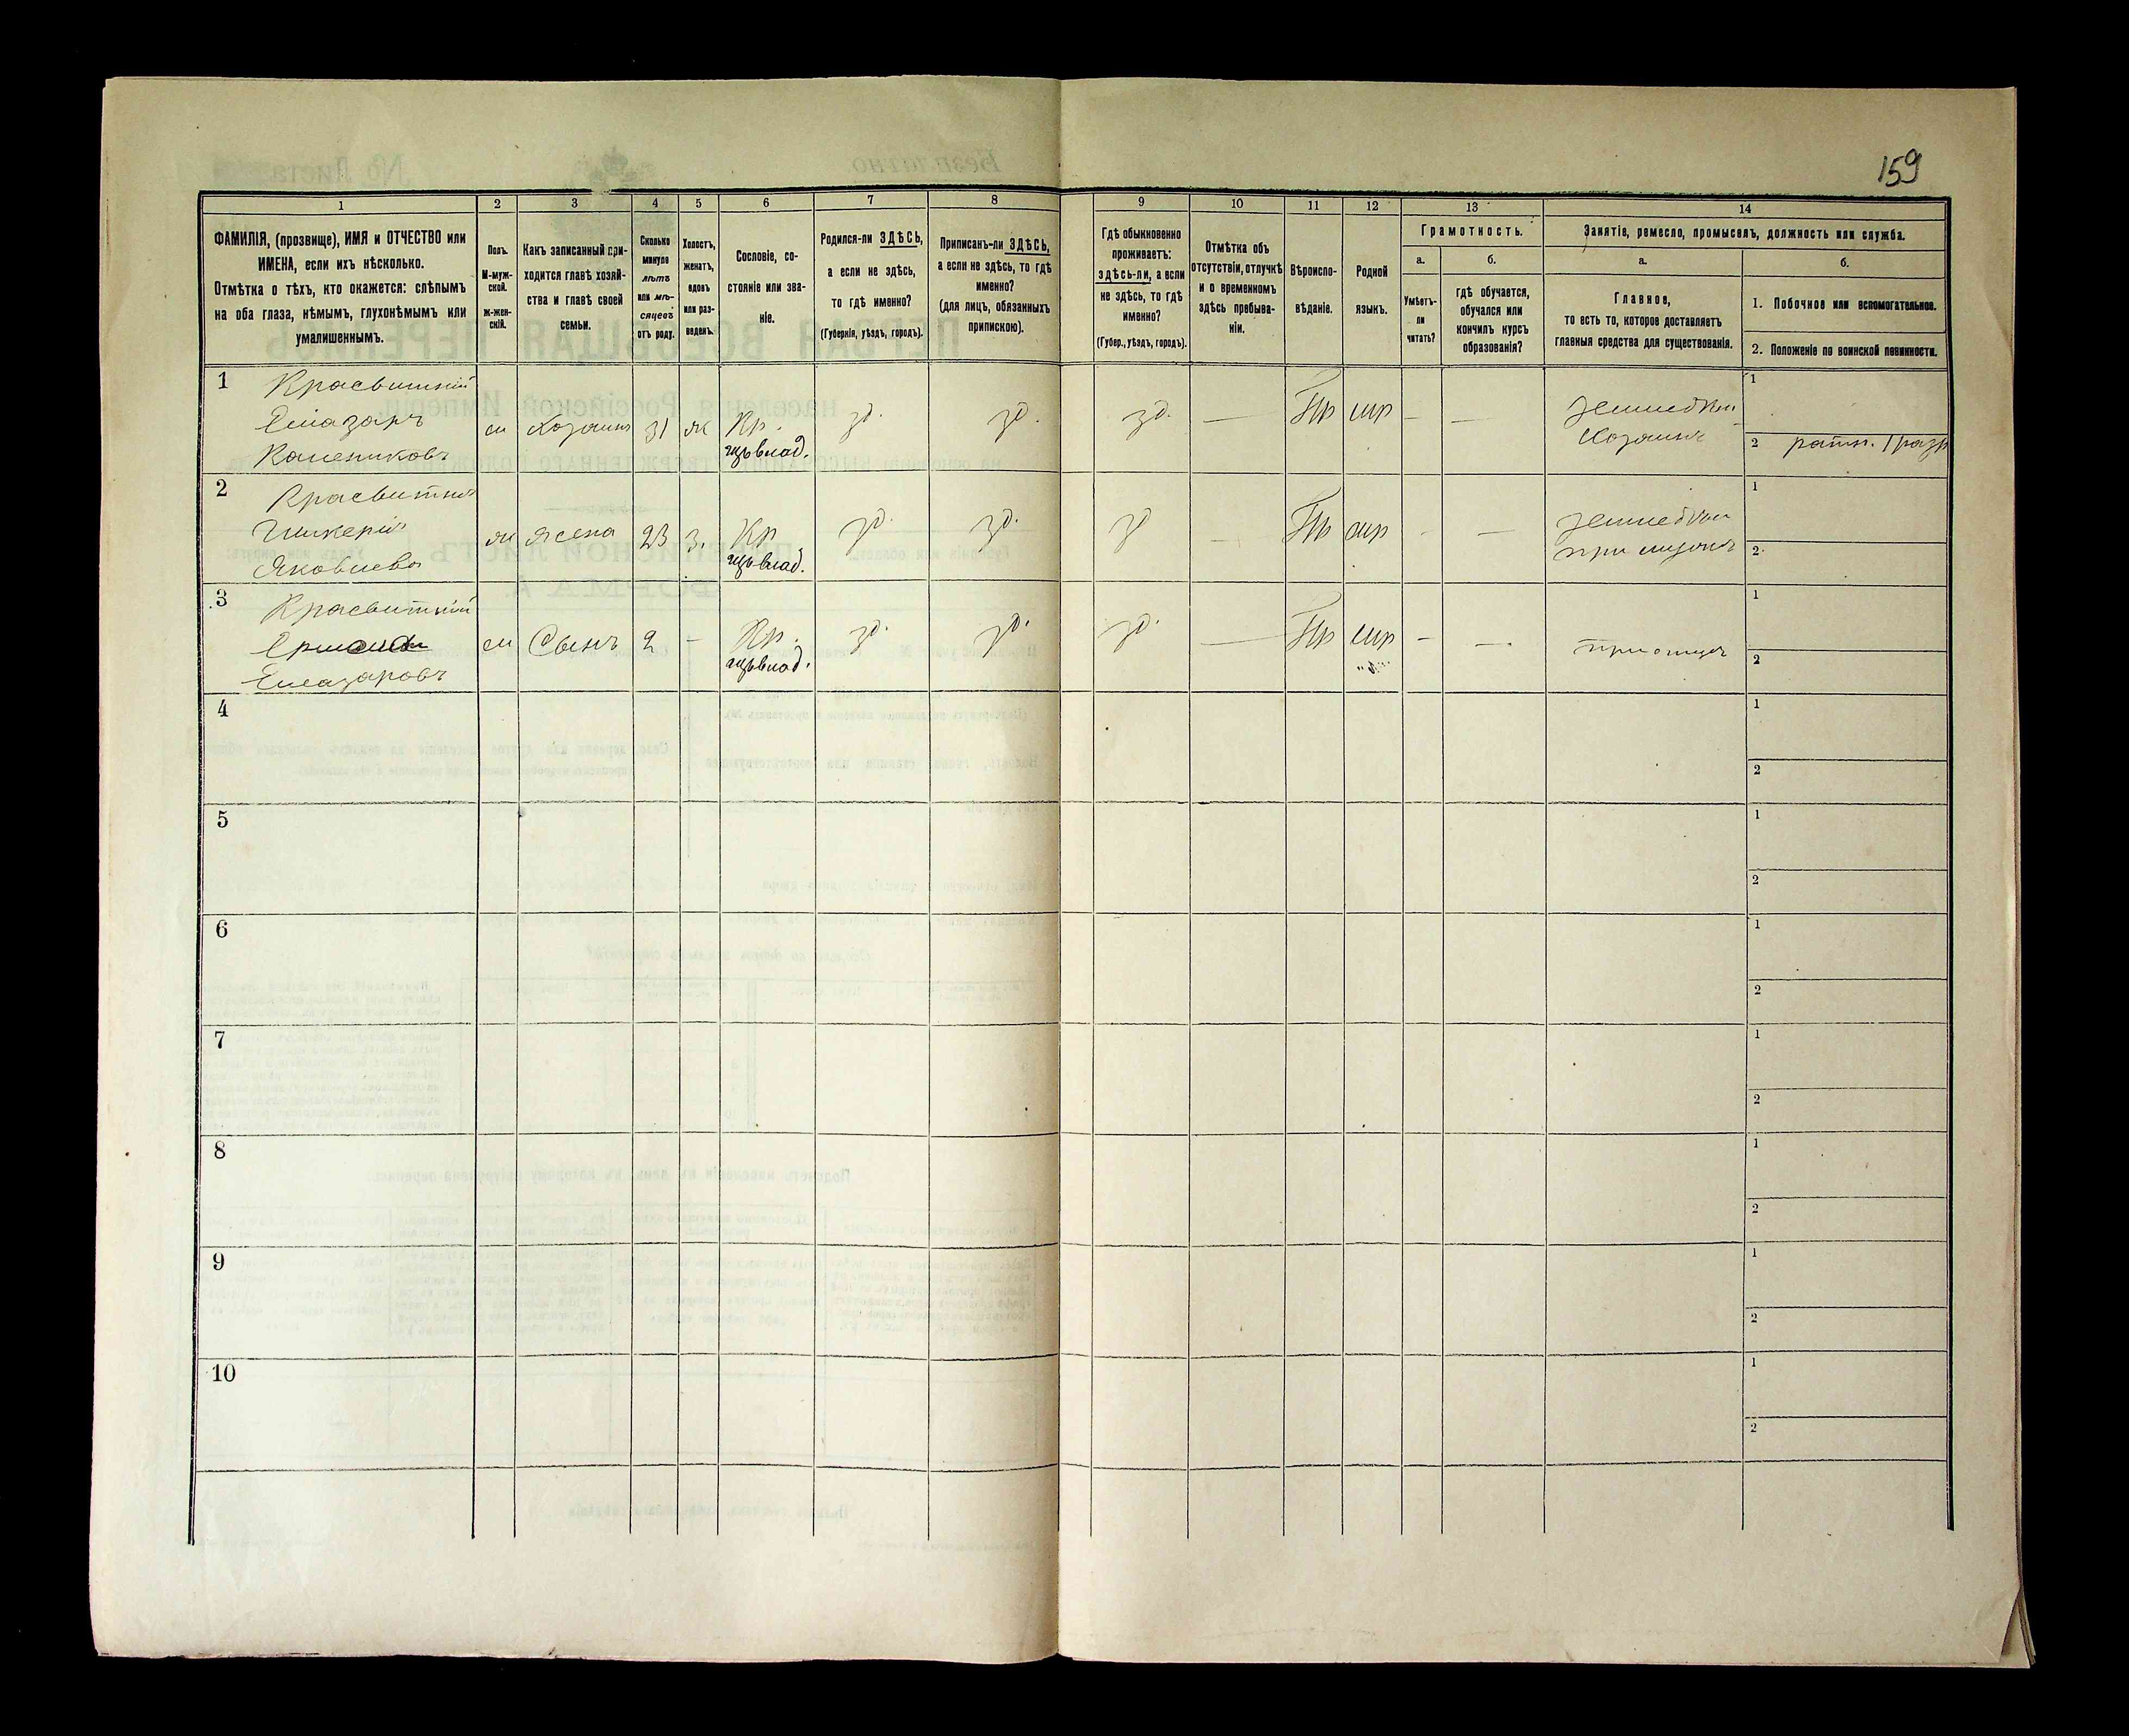 159
1 2 3 4 5 6 7 8 9 10 11 12 13 14
ФАМИЛІЯ, (прозвище), ИМЯ и ОТЧЕСТВО или
ИМЕНА, если ихъ нѣсколько.
Отмѣтка о тѣхъ, кто окажется: слѣпымъ
на оба глаза, нѣмымъ, глухонѣмымъ или
умалишеннымъ.
Полъ.
М-муж-
ской.
ж-жен-
скій.
Какъ записанный при-
ходится главѣ хозяй-
ства и главѣ своей
семьи.
Сколько
минуло
лѣтъ
или мѣ-
сяцевъ
отъ роду.
Холостъ,
женатъ,
вдовъ
или раз-
веденъ.
Сословіе, со-
стояніе или зва-
ніе.
Родился-ли ЗДѢСЬ,
а если не здѣсь,
то гдѣ именно?
(Губернія, уѣздъ, городъ).
Приписанъ-ли ЗДѢСЬ,
а если не здѣсь, то гдѣ
именно?
(для лицъ, обязанныхъ
припискою).
Гдѣ обыкновенно
проживаетъ:
здѣсь-ли, а если
не здѣсь, то гдѣ
именно?
(Губер., уѣздъ, городъ).
Отмѣтка объ
отсутствіи, отлучкѣ
и о временномъ
здѣсь пребыва-
ніи.
Вѣроиспо-
вѣданіе.
Родной
языкъ.
Грамотность.
а.
Умѣетъ-
ли
читать?
б.
гдѣ обучается,
обучался или
кончилъ курсъ
образованія?
Занятіе, ремесло, промыселъ, должность или служба.
а.
Главное,
то есть то, которое доставляетъ
главныя средства для существованія.
б.
1. Побочное или вспомогательное.
2. Положеніе по воинской повинности.
1 Красвитний
Елиазаръ
м Хозяинъ 31 ж Кр. зд. зд. зд. — Пр мр — —
Хозяинъ
1
2 ратн. 1 разр
2
Гликерія
Яковлева
ж Жена 23 з. Кр зд. зд. зд — Пр мр - —
1
2
3 Красвитний
Елиазаровъ
м Сынъ 2 - Кр. зд. зд. зд. — Пр мр - —
при отцѣ
1
2
4 1
2
5 1
2
6 1
2
7 1
2
8 1
2
9 1
2
10 1
2